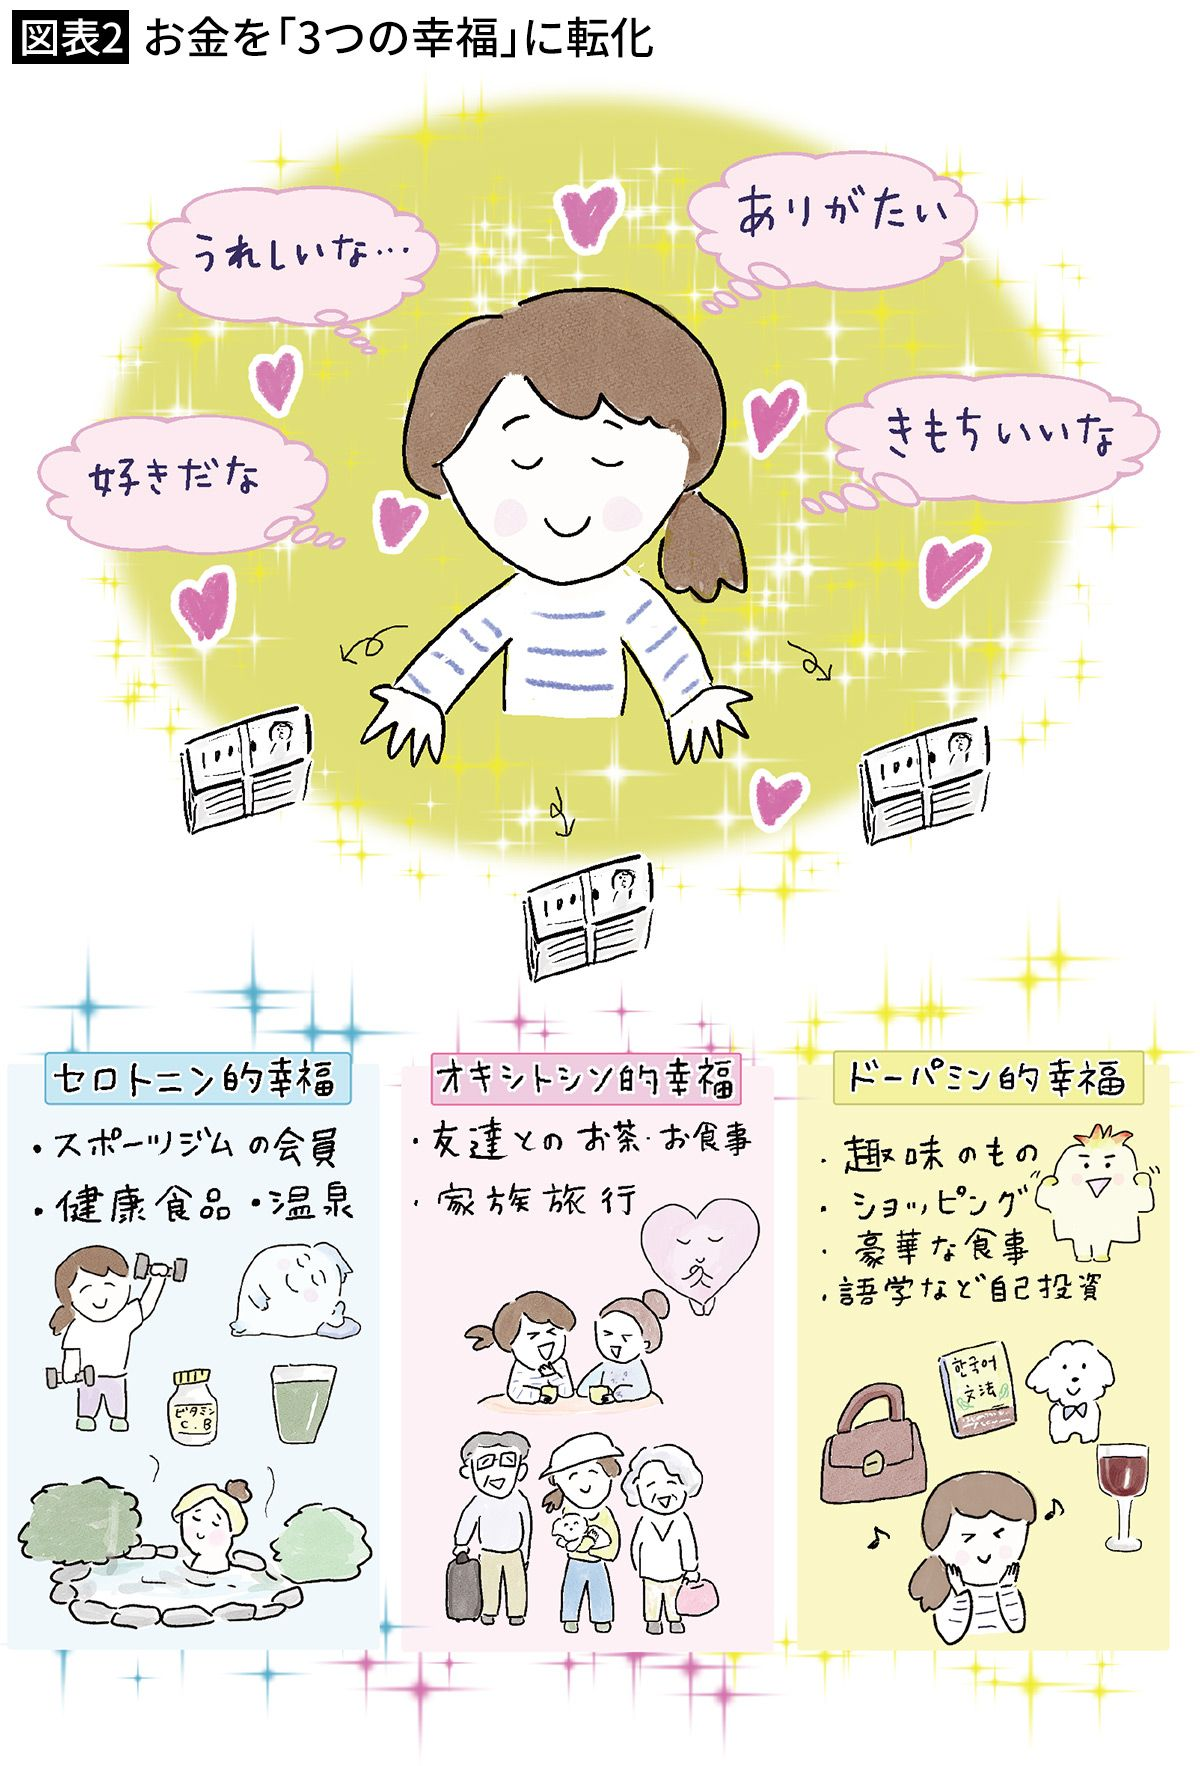 図表2 お金を「3つの幸福」に転化
うれしいな…
ありがたい
好きだな
きもちいいな
セロトニン的幸福
・スポーツジムの会員
・健康食品・温泉
ビタミン
C.B
オキシトシン的幸福
・友達とのお茶・お食事
・家族旅行
ドーパミン的幸福
・趣味のもの
・ショッピング
・豪華な食事
・語学など自己投資
한국어
文法